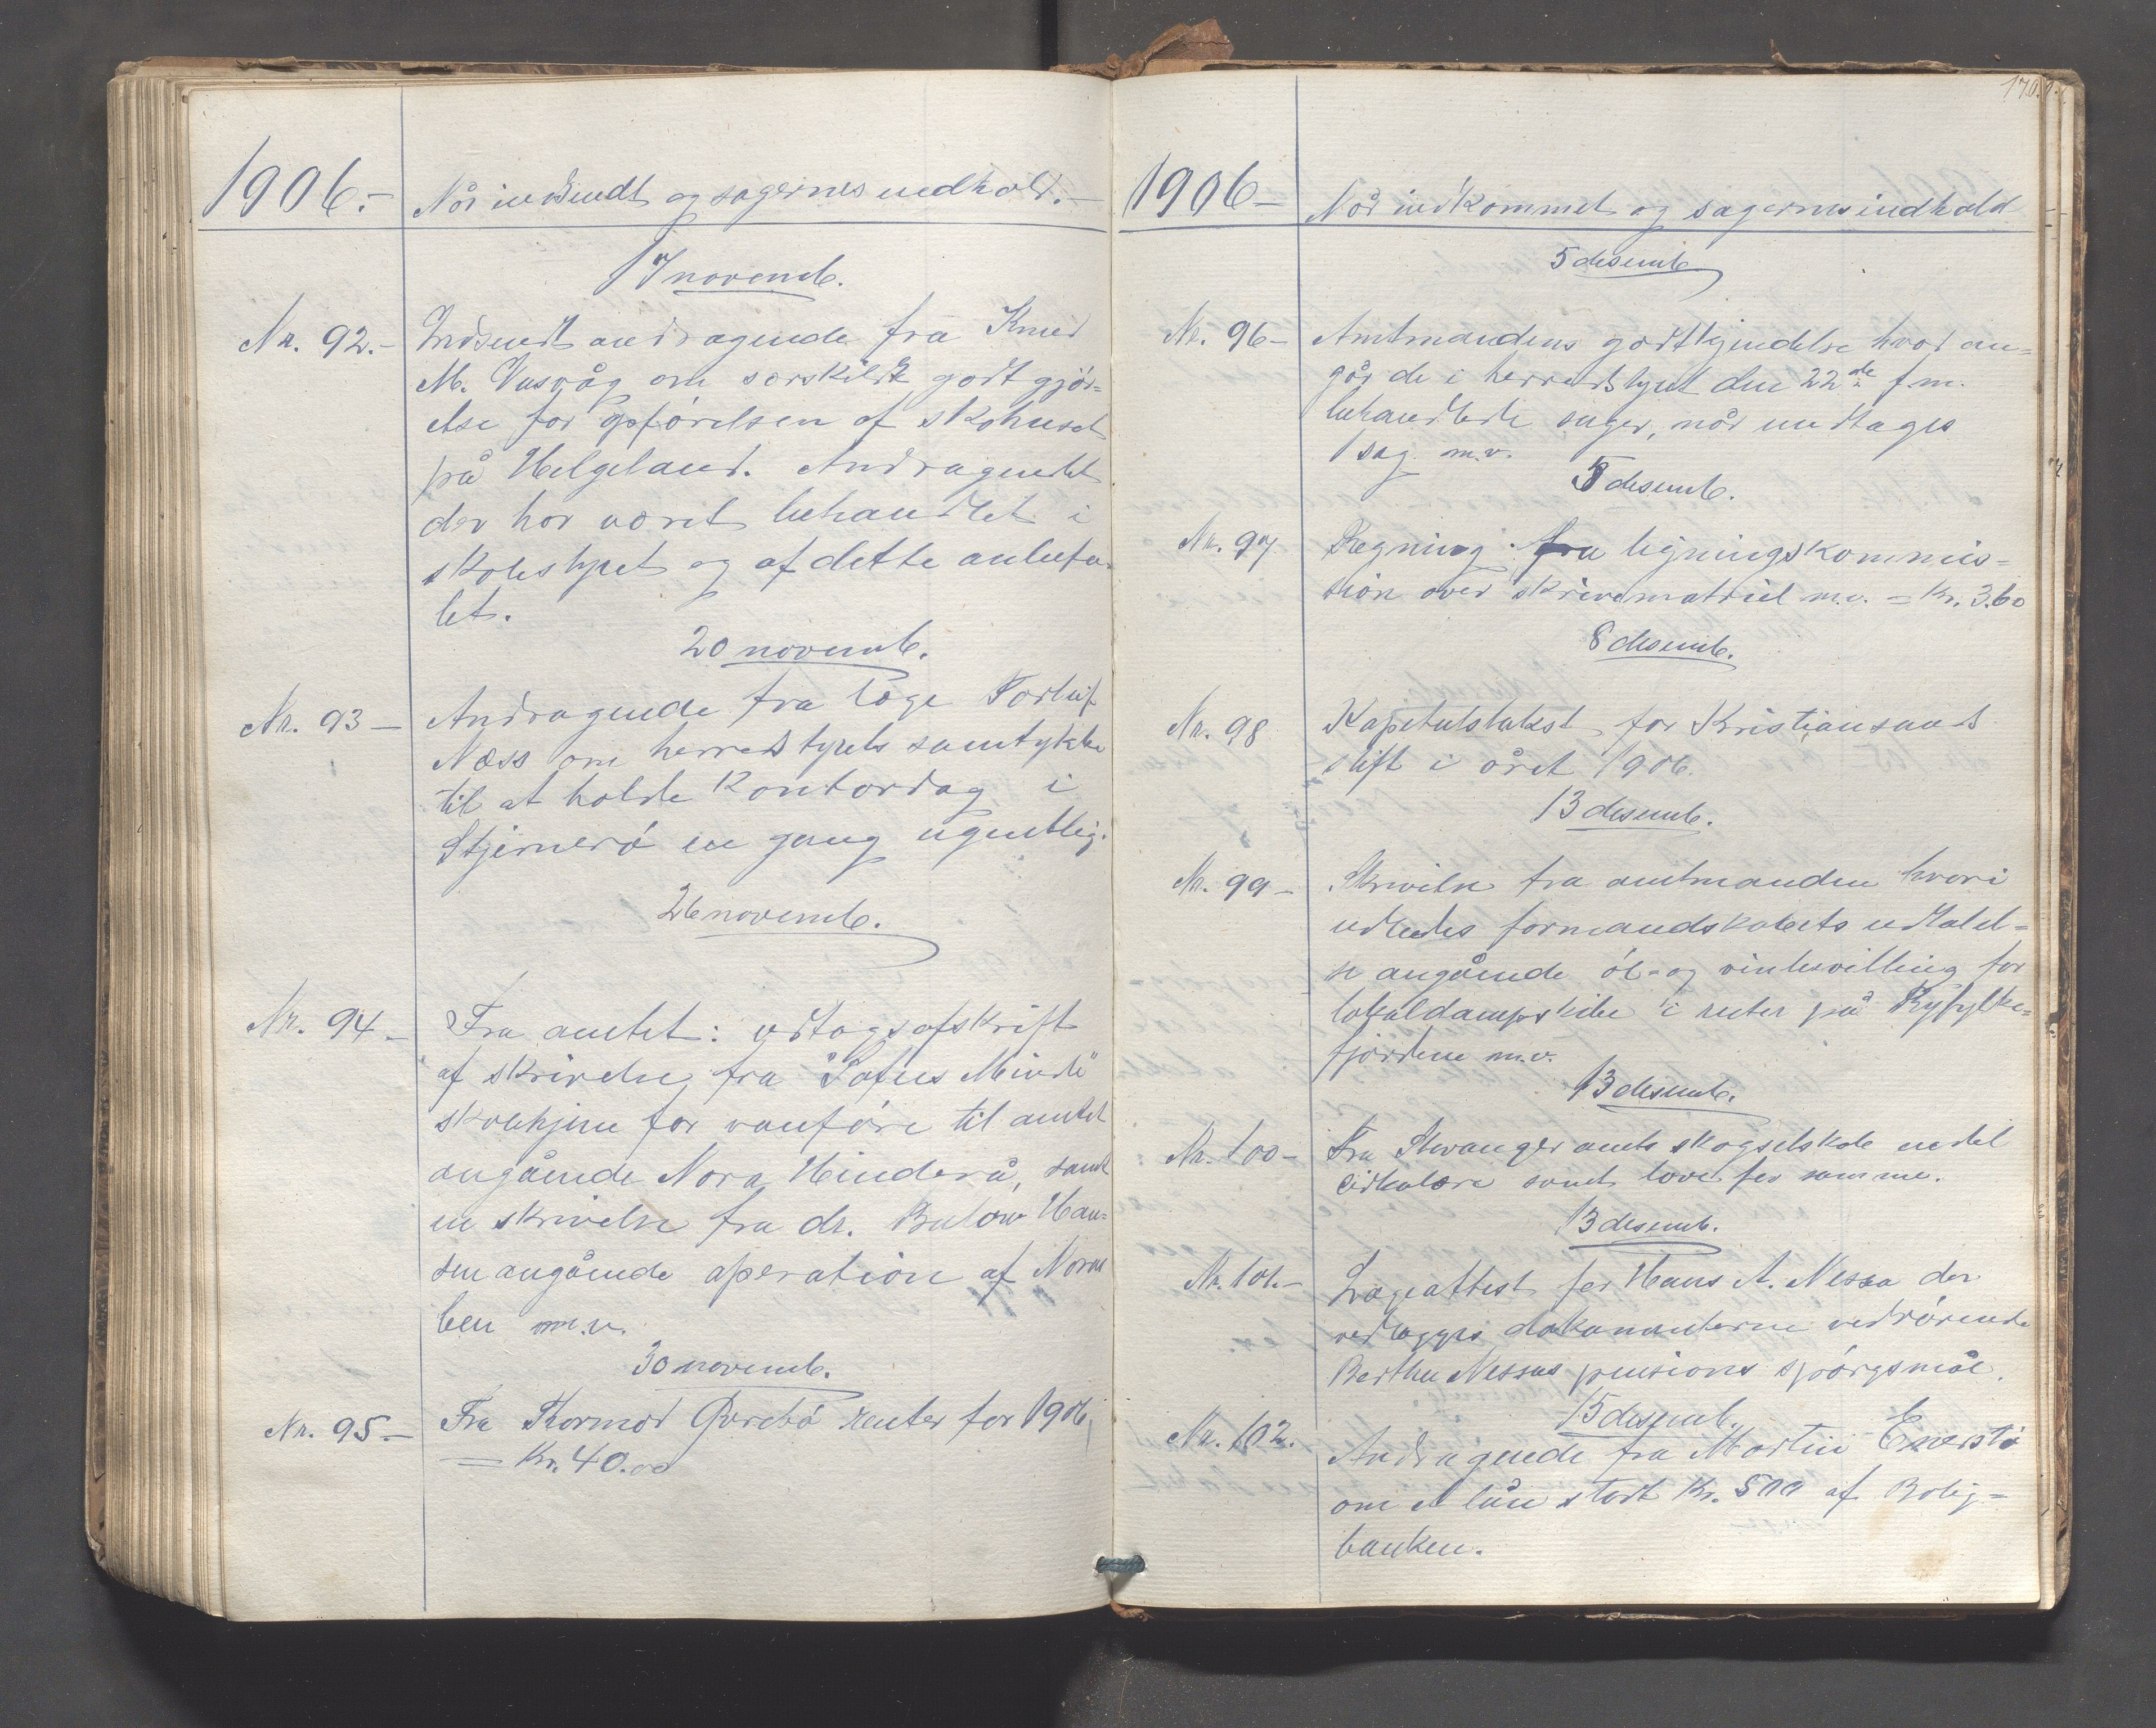 1906.- Når indsendt og sagernes indhold.-
17 novemb.
Nr. 92.- Indsendt andragende fra Knud
M. Vasvåg om særskildt godtgjör-
else for opförelsen af skohuset
på Helgeland. Andragendet
der har været behandlet i
skolestyret og af dette anbefa-
let.
20 novemb.
Nr. 93 - Andragende fra læge Torleif
Næss om herredstyrets samtykke
til at holde kontordag i
Stjernerö en gang ugentlig.
26 novemb.
Nr. 94 - Fra amtet: udtogsafskrift
af skrivelse fra "Sofies Minde"
skolehjem for vanföre til amtet
angående Nora Hinderå, samt
en skrivelse fra dr. Bulow Han-
sen angående operation af Noras
ben m.v.
30 novemb.
Nr. 95 - Fra Thormod renter for 1906,
= Kr. 40.00
170.
1906 - Når indkommet og sagernes indhold
5 desemb
Nr. 96 - Amtmandens godtkjendelse hvad an-
går de i herredstyret den 22de f.m.
behandlede sager, når undtages
1 sag m.v.
5 desemb.
Nr. 97. Regning fra ligningskommis-
sion over skrivematriel m.v. = Kr. 3.60
8 desemb.
Nr. 98 Kapitelstakst for Kristiansands
stift i året 1906.
13 desemb.
Nr. 99 - Skrivelse fra amtmanden hvori
udbedes formandskabets udtalel-
se angående öl- og vinbevilling for
lokaldampskibe i ruter på Ryfylke-
fjordene m.v.
13 desemb.
Nr. 100 - Fra Stavanger amts skogselskab endel
cirkulære samt love for samme.
13 desemb.
Nr. 101.- Lægeattest for Hans A. Nessa der
vedlægges dokumenterne vedrörende
Bertha Nessas pensions spörgsmål.
15 desemb.
Nr. 102. Andragende fra Martin Enerstö
om et lån stort Kr. 500 af Bolig-
banken.